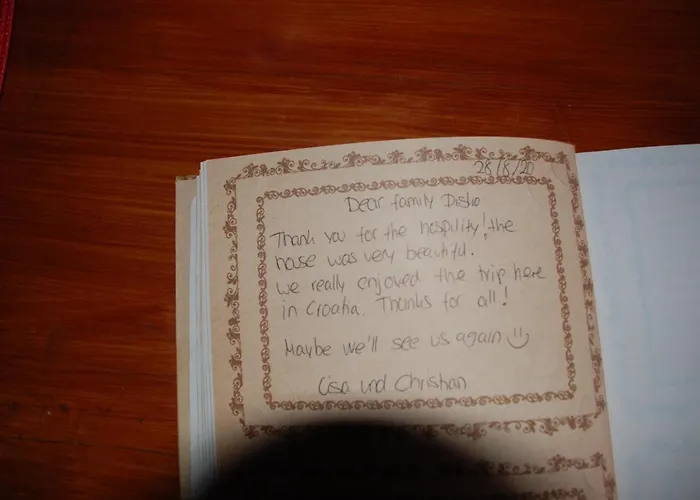 28/8/20
Dear family Disho
Thank you for the hospility! the
house was very beautiful.
We really enjoyed the trip here
in Croatia. Thanks for all!
Maybe we'll see us again :)
Lisa und Christian